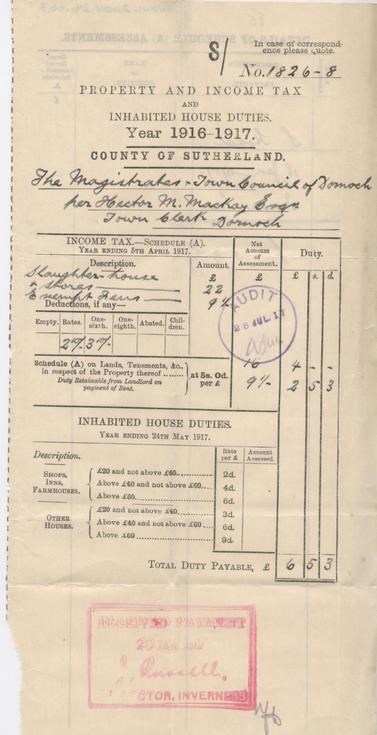 8/
In case of correspond-
ence please quote.
No. 1826-8
PROPERTY AND INCOME TAX
AND
INHABITED HOUSE DUTIES.
Year 1916-1917.
COUNTY OF SUTHERLAND.
The Magistrates & Town Council of Dornoch
per Hector M. Mackay Esqr
Town Clerk Dornoch
INCOME TAX.—SCHEDULE (A).
YEAR ENDING 5TH APRIL 1917.
Net Amount of Assessment.
Duty.
Description. Amount. £ £ s. d.
Slaughter-house £
& stores 22
Exempt Feus 9
Deductions, if any—
Empty. Rates. One-sixth. One-eighth. Abated. Children.
AUDIT
26 JUL. 17
Schedule (A) on Lands, Tenements, &c., 16 4 - -
in respect of the Property thereof at 5s. 0d. per £
Duty Retainable from Landlord on payment of Rent. 9 2 5 3
INHABITED HOUSE DUTIES.
YEAR ENDING 24TH MAY 1917.
Description. Rate per £ Amount Assessed.
SHOPS, INNS, FARMHOUSES.
£20 and not above £40 2d.
Above £40 and not above £60 4d.
Above £60 6d.
OTHER HOUSES.
£20 and not above £40 3d.
Above £40 and not above £60 6d.
Above £60 9d.
TOTAL DUTY PAYABLE, £ 6 5 3
RECEIVED PAYMENT
Russell
INVERNESS